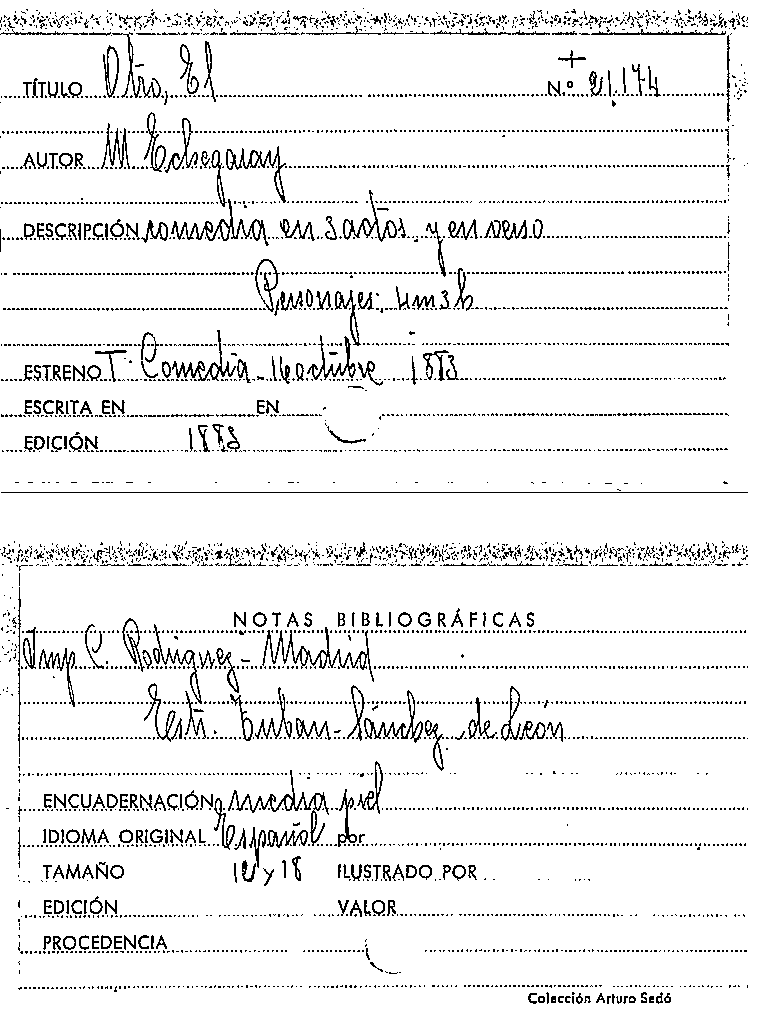 TÍTULO Otro, El N.º 21.174
AUTOR M Echegaray
DESCRIPCIÓN comedia en 3 actos y en verso
Personajes: 4m3h
ESTRENO T. Comedia - 16 octubre 1883
ESCRITA EN EN
EDICIÓN 1883
NOTAS BIBLIOGRÁFICAS
Imp C. Rodriguez - Madrid
Estr. - Sánchez de León
ENCUADERNACIÓN media piel
IDIOMA ORIGINAL Español por
TAMAÑO y 18 ILUSTRADO POR
EDICIÓN VALOR
PROCEDENCIA
Colección Arturo Sedó